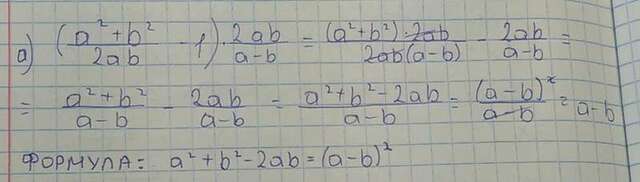 a) (a²+b²/2ab - 1) · 2ab/a-b = (a²+b²)·2ab/2ab(a-b) - 2ab/a-b =
= a²+b²/a-b - 2ab/a-b = a²+b²-2ab/a-b = (a-b)²/a-b = a-b
ФОРМУЛА= a²+b²-2ab=(a-b)²